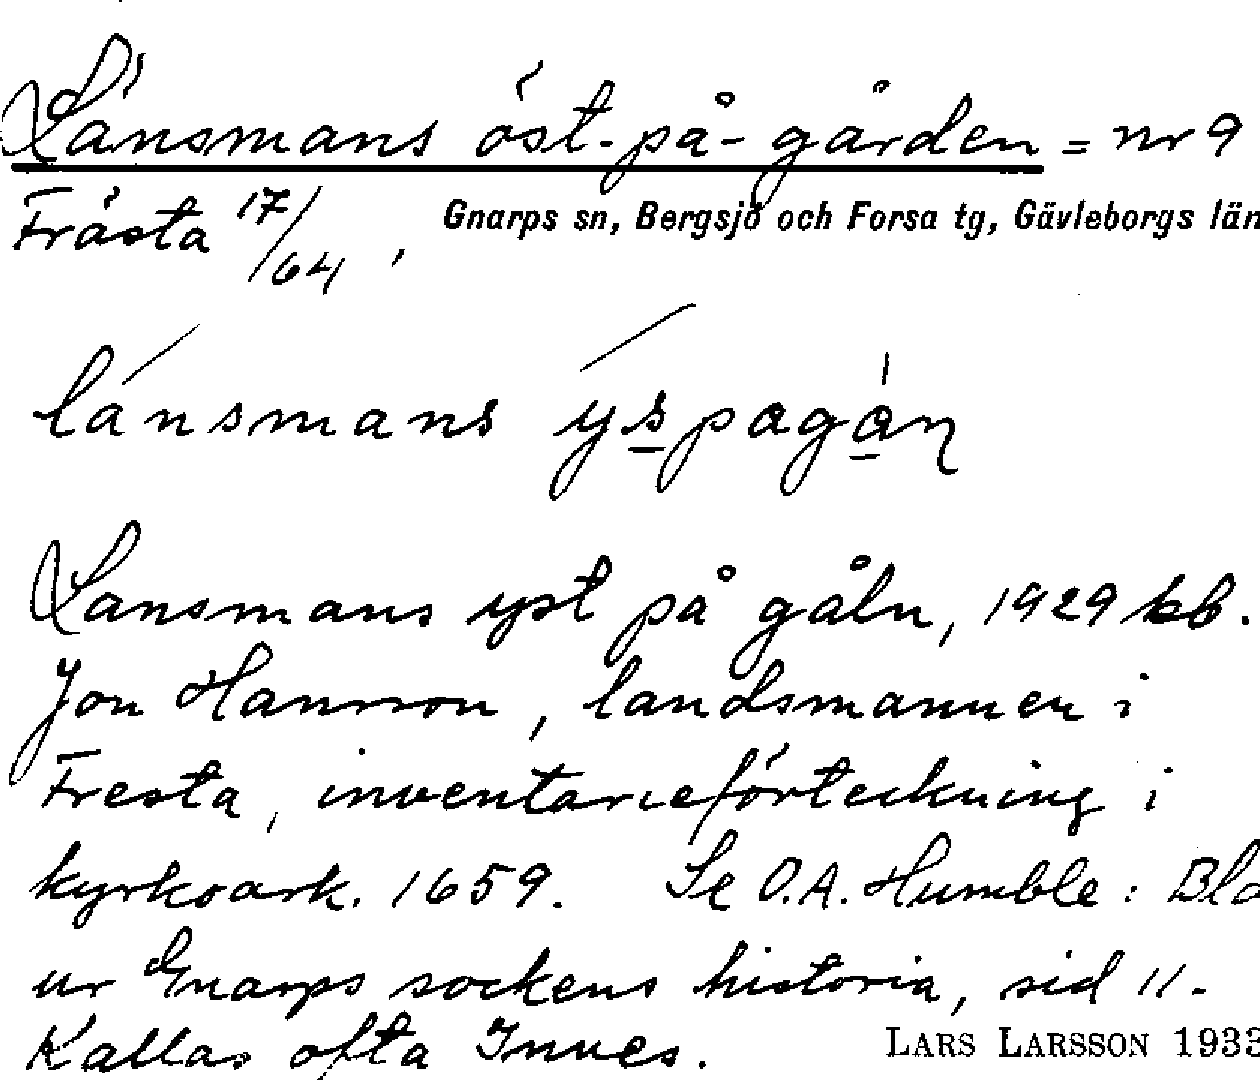 Länsmans öst-på-gården = nr 9
Frästa 17/64, Gnarps sn, Bergsjö och Forsa tg, Gävleborgs län
länsmans yspagán
Länsmans yst på gåln, 1929 kb.
Jon Hansson, landsmannen i
Fresta, inventarieförteckning i
kyrkoark. 1659. Se O.A. Humble: Bla
ur Gnarps sockens historia, sid 11.
Kallas ofta Innes.
LARS LARSSON 1933